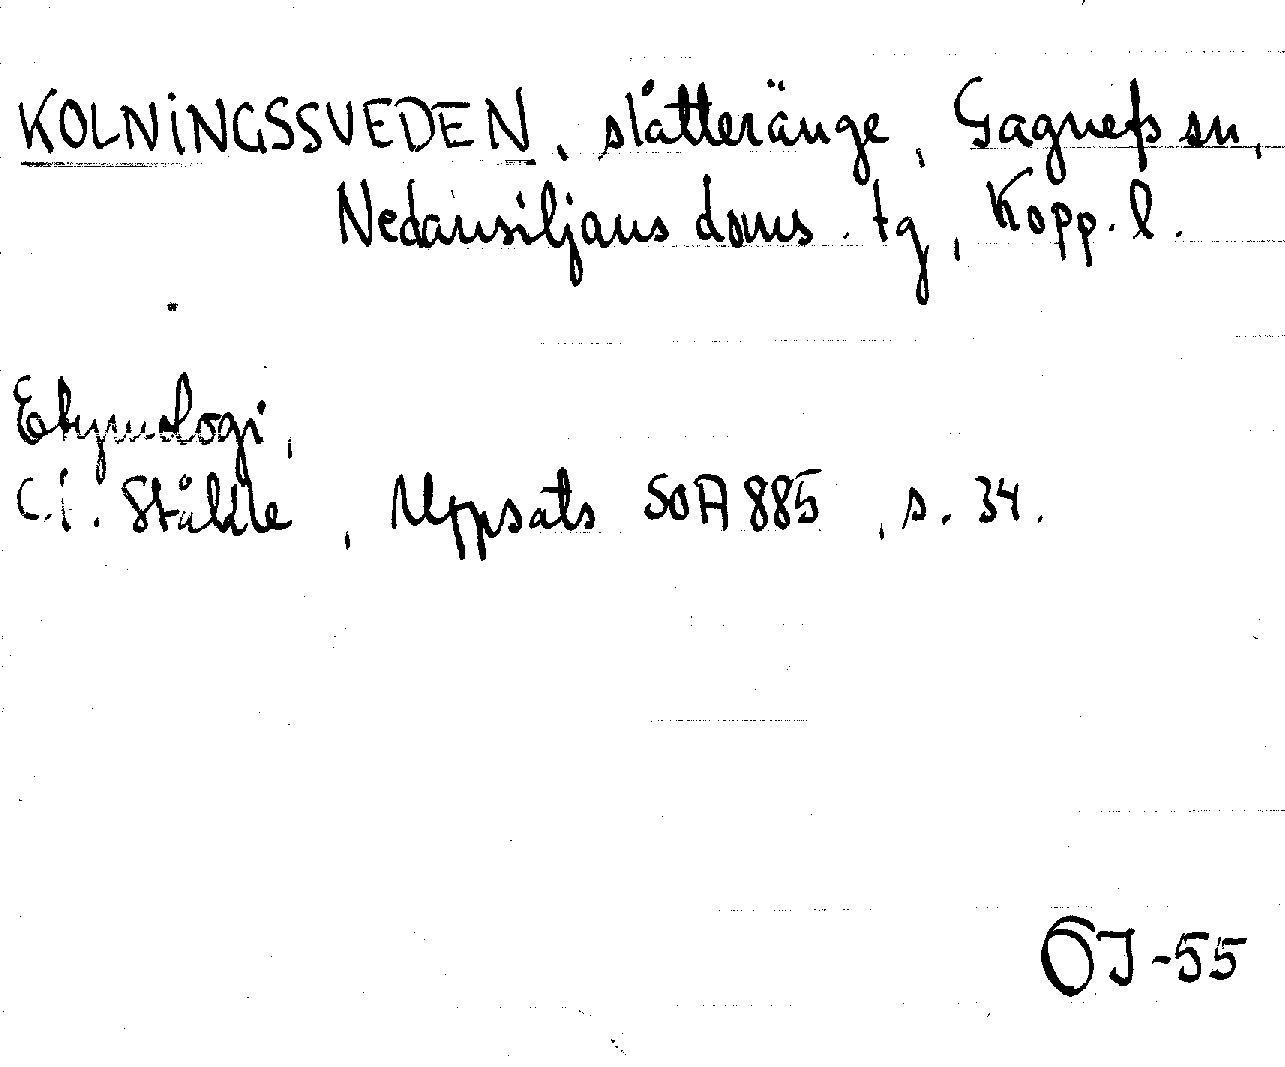 KOLNINGSSVEDEN, slåtteränge, Gagnefs sn,
Nedansiljans doms. tg, Kopp. l.
Etymologi,
C.I. Ståhle, Uppsats SOA 885, s. 34.
OJ-55